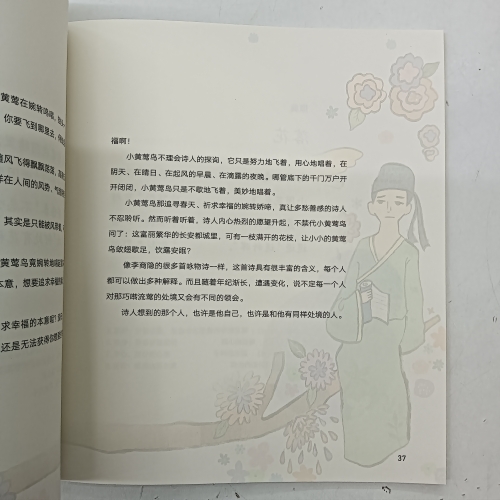 黄莺在婉转鸣唱
你要飞到哪里去
风飞得飘飘荡荡
在人间的风势
其实是只能被风
黄莺鸟竟婉转地
本意，想要追求幸福
求幸福的本意呢？
还是无法获得
福啊！
小黄莺鸟不理会诗人的探询，它只是努力地飞着，用心地唱着，在
阴天、在晴日、在起风的早晨、在滴露的夜晚。哪管底下的千门万户开
开闭闭，小黄莺鸟只是不歇地飞着，美妙地唱着。
小黄莺鸟那追寻春天、祈求幸福的婉转娇啼，真让多愁善感的诗人
不忍聆听。然而听着听着，诗人内心热烈的愿望升起，不禁代小黄莺鸟
问了：这富丽繁华的长安都城里，可有一枝满开的花枝，让小小的黄莺
鸟敛翅歇足，饮露安眠？
像李商隐的很多首咏物诗一样，这首诗具有很丰富的含义，每个人
都可以做出多种解释。而且随着年纪渐长，遭遇变化，说不定每一个人
对那巧啭流莺的处境又会有不同的领会。
诗人想到的那个人，也许是他自己，也许是和他有同样处境的人。
37